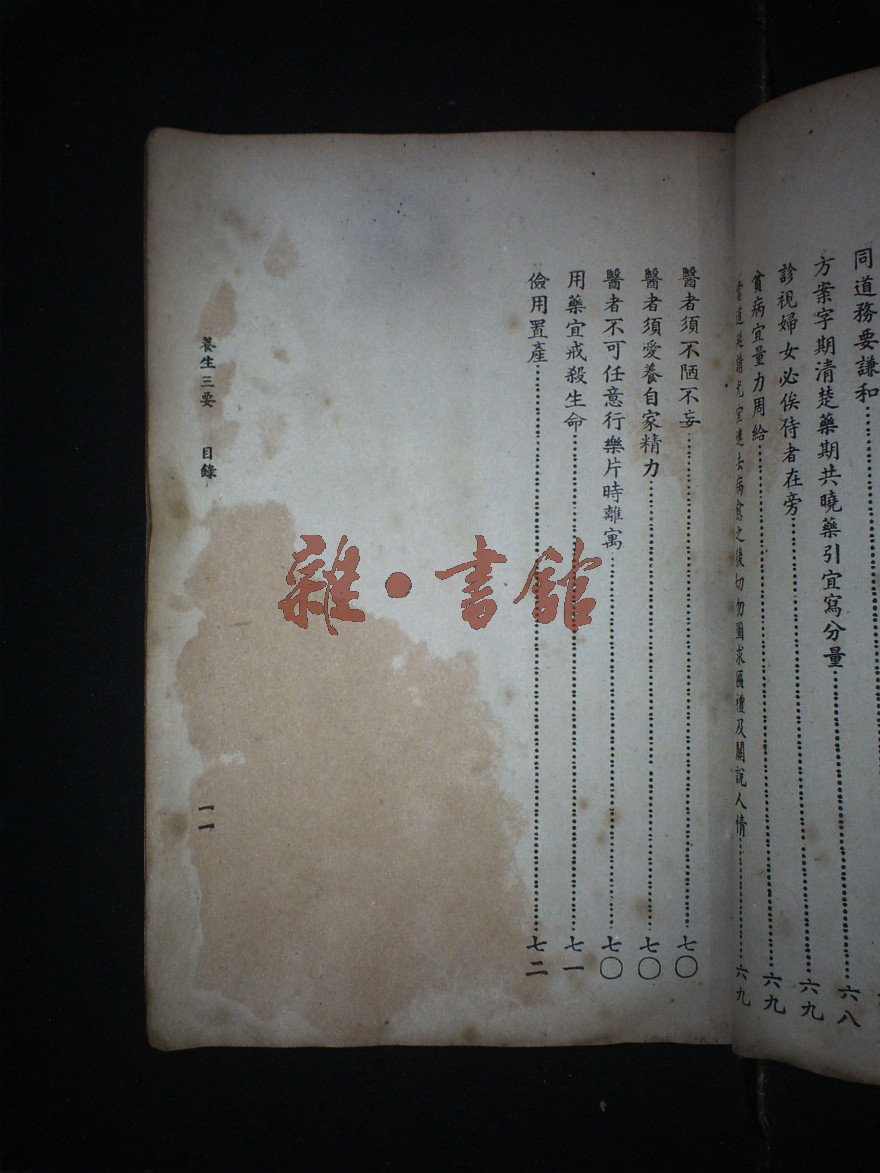 同道務要謙和
方案字期清楚藥期共曉藥引宜寫分量……六八
診視婦女必俟侍者在旁……六九
貧病宜量力周給……六九
病愈之後切勿圖求匾禮及關說人情……六九
醫者須不陋不妄……七〇
醫者須愛養自家精力……七〇
醫者不可任意行樂片時離寓……七〇
用藥宜戒殺生命……七一
儉用置產……七二
養生三要 目錄
一一
雜·書館